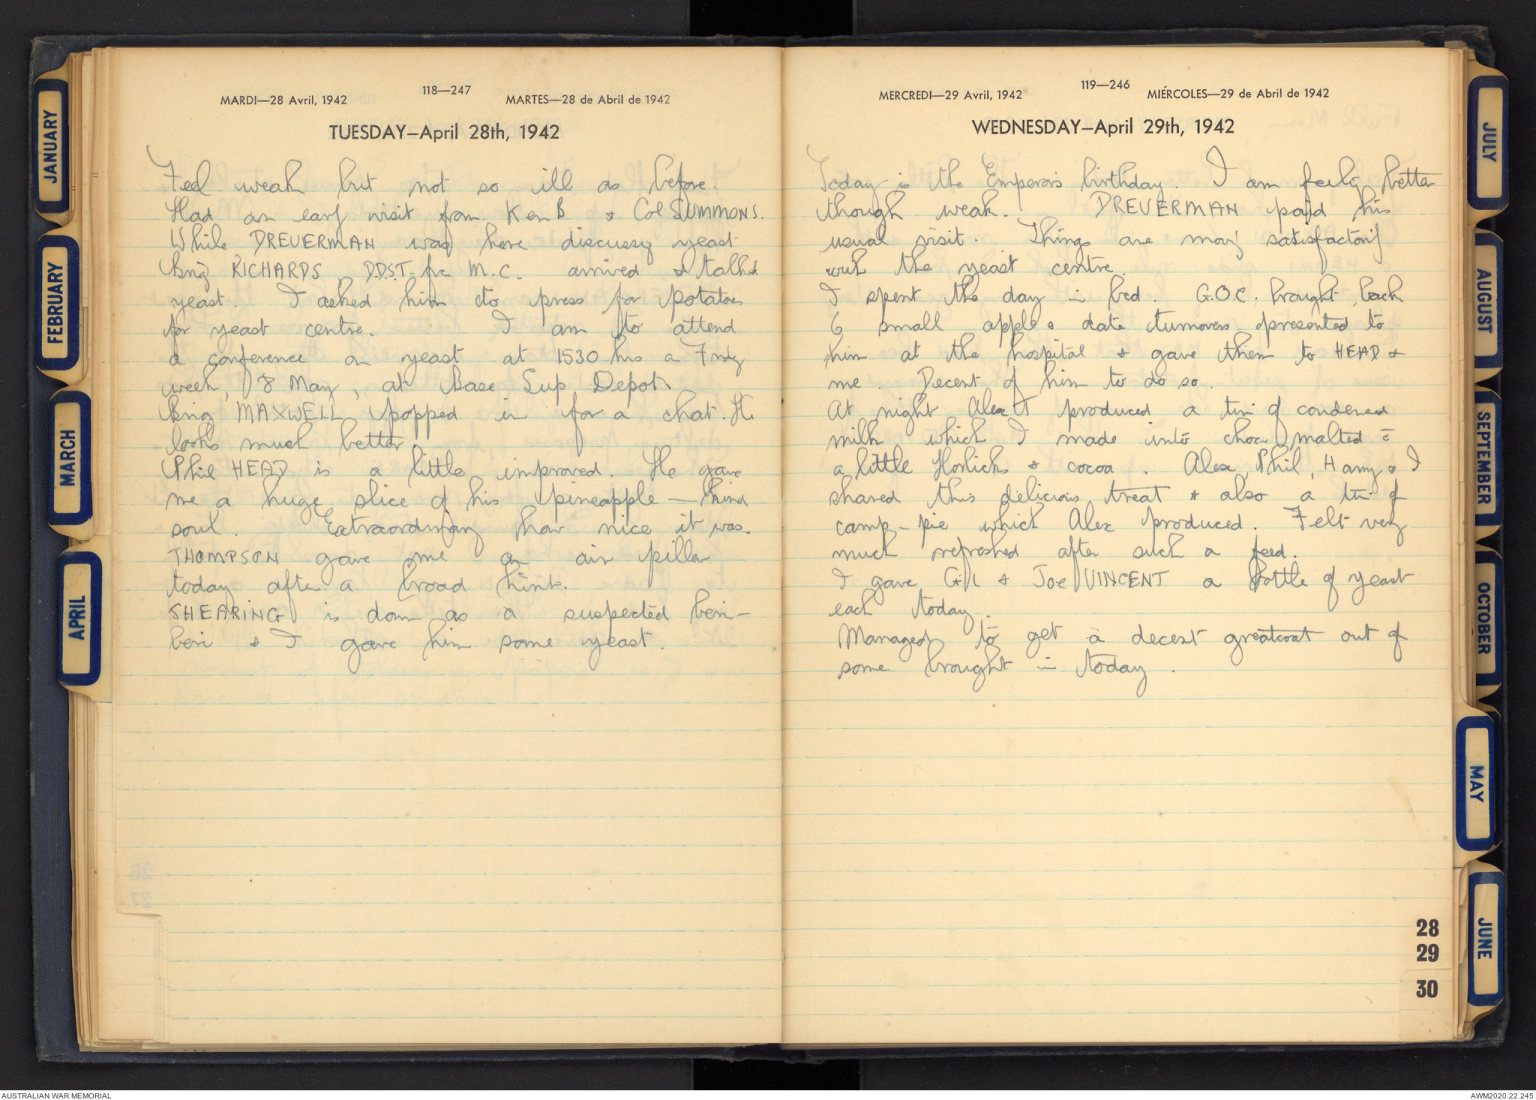 JANUARY
FEBRUARY
MARCH
APRIL
118—247
MARDI—28 Avril, 1942 MARTES—28 de Abril de 1942
TUESDAY—April 28th, 1942
Feel weak but not so ill as before.
Had an early visit from Ken B & Col SUMMONS.
While DREVERMAN was here discussing yeast
Brig RICHARDS DDST. for M.C. arrived & talked
yeast. I asked him to press for potatoes
for yeast centre. I am to attend
a conference on yeast at 1530 hrs a Friday
week, 8 May, at Base Sup Depot.
Brig MAXWELL popped in for a chat. He
looks much better.
Phil HEAD is a little improved. He gave
me a huge slice of his pineapple — kind
soul. Extraordinary how nice it was.
THOMPSON gave me an air pillow
today after a broad hint.
SHEARING is down as a suspected beri-
beri & I gave him some yeast.
119—246
MERCREDI—29 Avril, 1942 MIÉRCOLES—29 de Abril de 1942
WEDNESDAY—April 29th, 1942
Today is the Emperors birthday. I am feeling better
though weak. DREVERMAN paid his
usual visit. Things are satisfactory
with the yeast centre.
I spent the day in bed. G.O.C. brought back
6 small apple & date turnovers presented to
him at the hospital & gave them to HEAD &
me. Decent of him to do so.
At night Alex produced a tin of condensed
milk which I made into choc malted c̄
a little Horlicks & cocoa. Alex, Phil, Harry & I
shared this delicious treat & also a tin of
camp-pie which Alex produced. Felt very
much refreshed after such a feed.
I gave Gil & Joe VINCENT a bottle of yeast
each today.
Managed to get a decent greatcoat out of
some brought in today.
28
29
30
JULY
AUGUST
SEPTEMBER
OCTOBER
MAY
JUNE
AUSTRALIAN WAR MEMORIAL
AWM2020.22.245